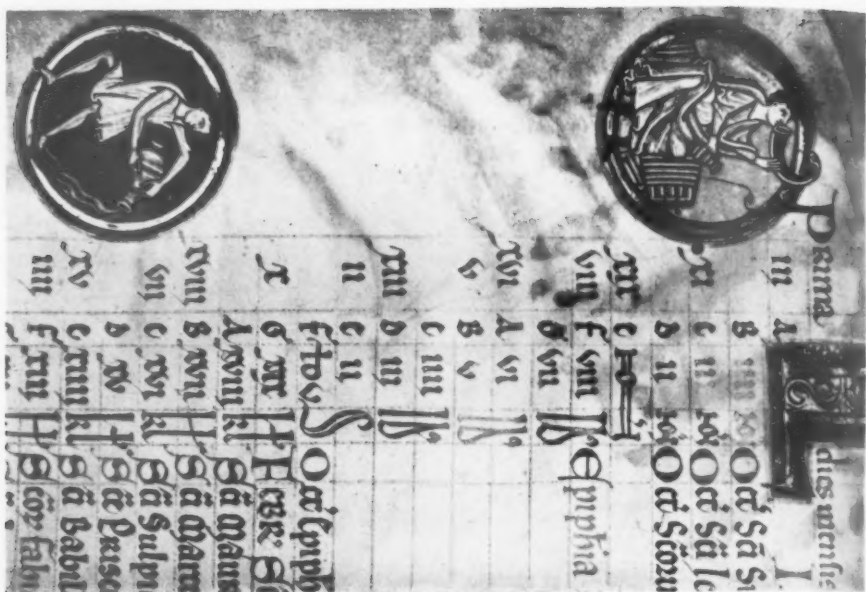 Prima dies mensis
iii A
B iiii no Oct Sci S
xi C iii no Oct Sci Io
D ii no Oct Scorum
xix E Non
viii F viii Id Epiphia
G vii Id
xvi A vi Id
v B v Id
C iiii Id
xiii D iii Id
ii E ii Id
F Idus Oct Epiph
x G xix kl Febr S
A xviii kl Sci Mau
xviii B xvii kl Sci Marc
vii C xvi kl Sci Sulp
D xv kl Sce Prisc
xv E xiiii kl Sci Babil
iiii F xiii kl Scor Fabi